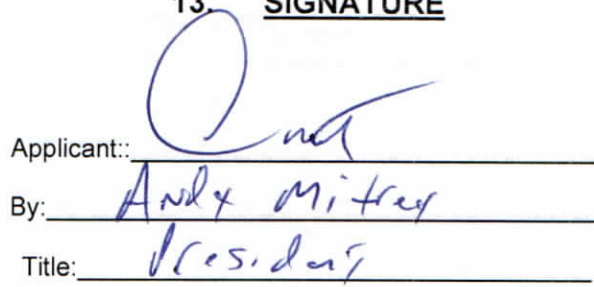 13. SIGNATURE
Applicant::
By: Andy Mitrey
Title: President